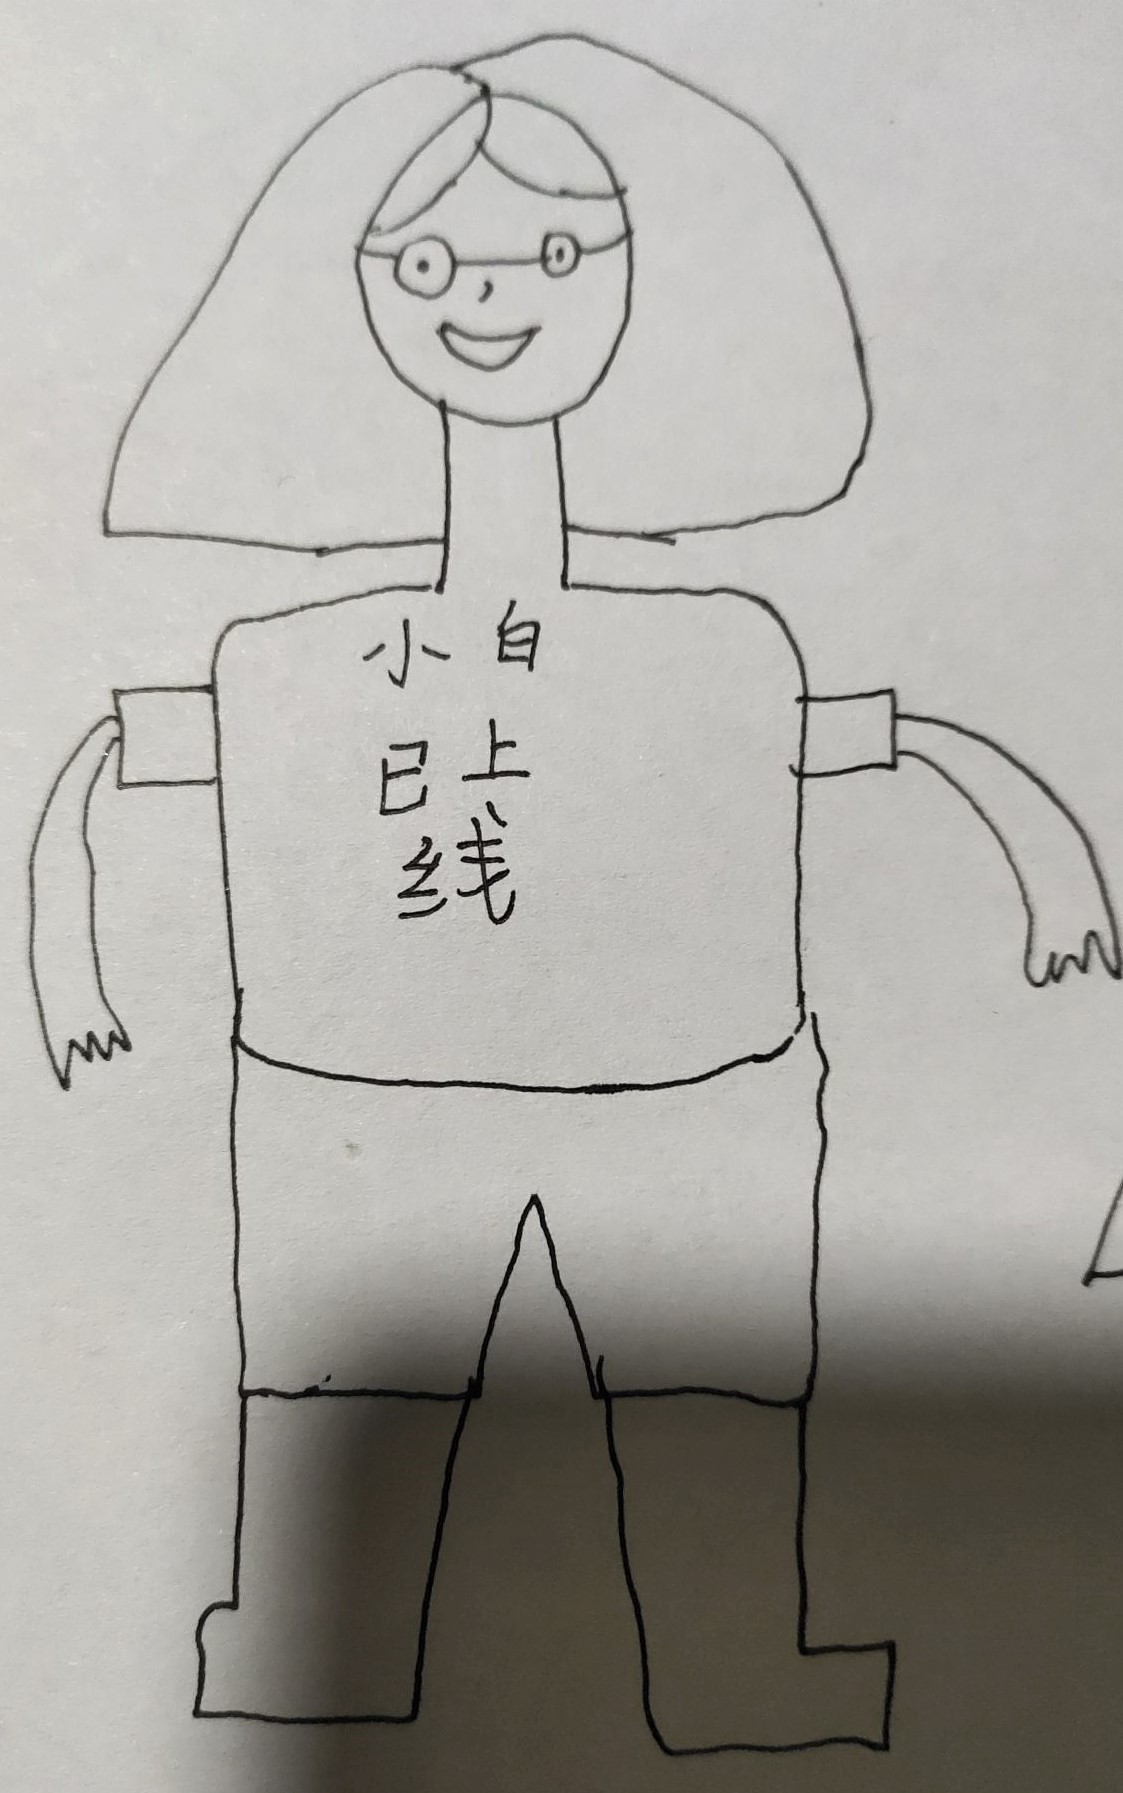 小白
已上
线